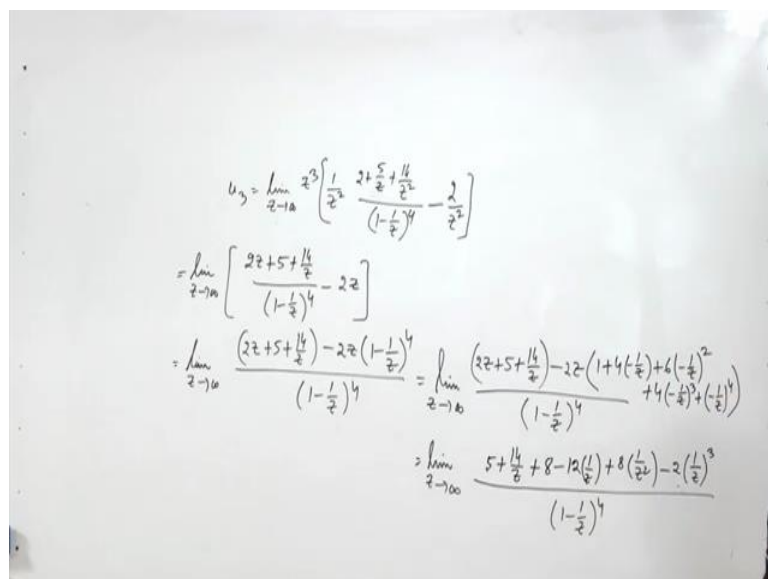 u₃ = lim_{z→∞} z³ [ 1/z² (2 + 5/z + 14/z²)/(1 - 1/z)⁴ - 2/z² ]
= lim_{z→∞} [ (2z + 5 + 14/z)/(1 - 1/z)⁴ - 2z ]
= lim_{z→∞} ((2z + 5 + 14/z) - 2z(1 - 1/z)⁴)/(1 - 1/z)⁴ = lim_{z→∞} ((2z + 5 + 14/z) - 2z(1 + 4(-1/z) + 6(-1/z)² + 4(-1/z)³ + (-1/z)⁴))/(1 - 1/z)⁴
= lim_{z→∞} (5 + 14/z + 8 - 12(1/z) + 8(1/z²) - 2(1/z)³)/(1 - 1/z)⁴